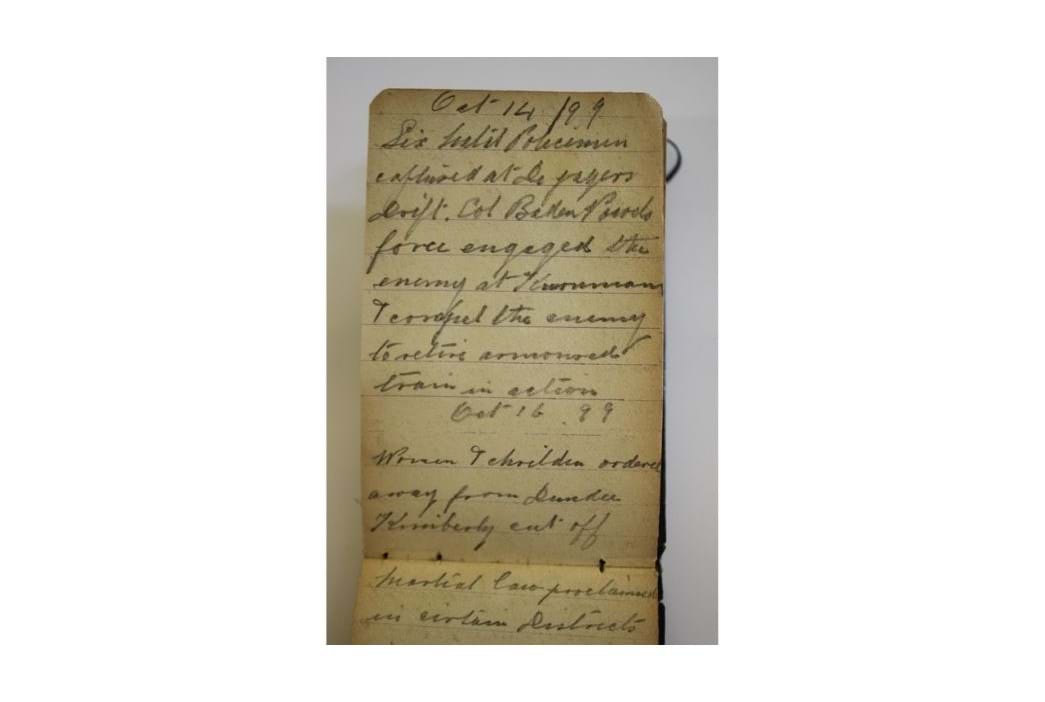 Oct 14 /99
Six Natal Policemen
captured at De Jagers
Drift. Col Baden Powels
force engaged the
enemy at Kurruman
& compel the enemy
to retire armoured
train in action
Oct 16 . 99
Women & children ordered
away from Dundee
Kimberly cut off
Martial Law proclaimed
in certain Districts